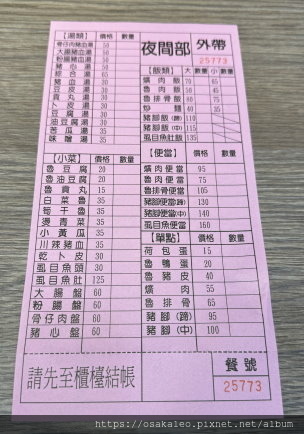 夜間部 外帶
25773
【湯類】 價格 數量
骨仔肉豬血湯 50
大腸豬血湯 50
粉腸豬血湯 50
豬心湯 50
綜合湯 65
豬血湯
豆皮湯
貢丸湯 30
卜皮湯
豆腐湯
油豆腐湯
苦瓜湯 35
味噌湯
【飯類】 大 數量 小 數量
爌肉飯 70
魯肉飯 50
魯排骨飯 80
炒麵 40
豬腳飯(蹄) 110
豬腳飯(中) 115
虱目魚肚飯 135
【小菜】 價格 數量
魯豆腐 20
魯油豆腐 20
魯貢丸 15
白菜魯 35
筍干魯 35
燙青菜 35
小黃瓜 35
川辣豬血 35
乾卜皮 30
虱目魚頭 30
虱目魚肚 125
大腸盤 60
粉腸盤 60
骨仔肉盤 60
豬心盤 60
【便當】 價格 數量
爌肉便當 95
魯肉便當 75
魯排骨便當 105
豬腳便當(蹄) 130
豬腳便當(中) 140
虱目魚便當 160
【單點】 價格 數量
荷包蛋 15
魯鴨蛋 20
魯豬皮 40
爌肉 55
魯排骨 65
豬腳(蹄) 95
豬腳(中) 100
請先至櫃檯結帳
餐號
25773
https://osakaleo.pixnet.net/album